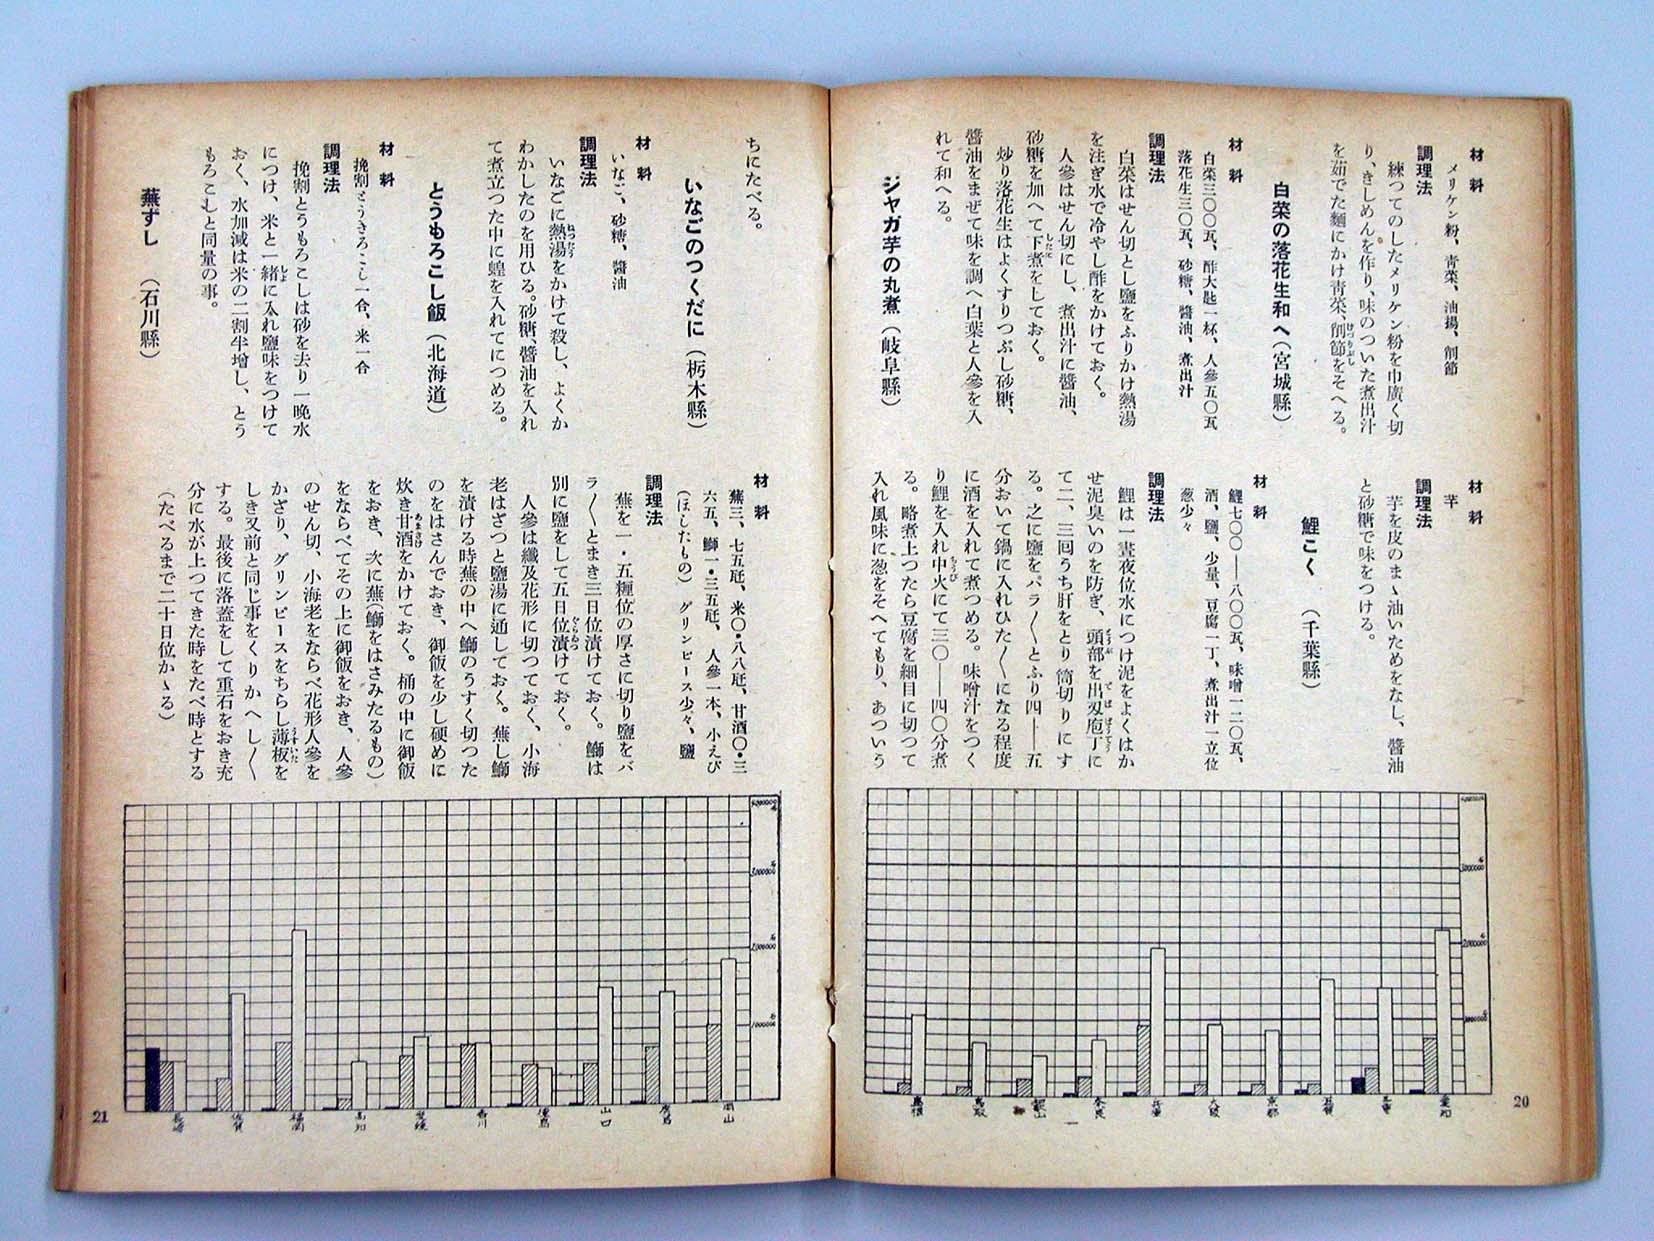 材料
メリケン粉、靑菜、油揚、削節
調理法
練つてのしたメリケン粉を巾廣く切
り、きしめんを作り、味のついた煮出汁
を茹でた麵にかけ靑菜、削節をそへる。
白菜の落花生和へ(宮城縣)
材料
白菜三〇〇瓦、酢大匙一杯、人參五〇瓦
落花生三〇瓦、砂糖、醬油、煮出汁
調理法
白菜はせん切とし鹽をふりかけ熱湯
を注ぎ水で冷やし酢をかけておく。
人參はせん切にし、煮出汁に醬油、
砂糖を加へて下煮をしておく。
炒り落花生はよくすりつぶし砂糖、
醬油をまぜて味を調へ白葉と人參を入
れて和へる。
ジヤガ芋の丸煮(岐阜縣)
材料
芋
調理法
芋を皮のまゝ油いためをなし、醬油
と砂糖で味をつける。
鯉こく(千葉縣)
材料
鯉七〇〇——八〇〇瓦、味噌一二〇瓦、
酒、鹽、少量、豆腐一丁、煮出汁一立位
葱少々
調理法
鯉は一晝夜位水につけ泥をよくはか
せ泥臭いのを防ぎ、頭部を出刄庖丁に
て二、三回うち肝をとり筒切りにす
る。之に鹽をパラ〳〵とふり四——五
分おいて鍋に入れひた〳〵になる程度
に酒を入れて煮つめる。味噌汁をつく
り鯉を入れ中火にて三〇——四〇分煮
る。略煮上つたら豆腐を細目に切つて
入れ風味に葱をそへてもり、あついう
4000000
3000000
2000000
1000000
愛知
三重
滋賀
京都
大阪
兵庫
奈良
和歌山
鳥取
島根
20
ちにたべる。
いなごのつくだに(栃木縣)
材料
いなご、砂糖、醬油
調理法
いなごに熱湯をかけて殺し、よくか
わかしたのを用ひる。砂糖、醬油を入れ
て煮立つた中に蝗を入れてにつめる。
とうもろこし飯(北海道)
材料
挽割とうきろこし一合、米一合
調理法
挽割とうもろこしは砂を去り一晩水
につけ、米と一緒に入れ鹽味をつけて
おく、水加減は米の二割半增し、とう
もろこしと同量の事。
蕪ずし(石川縣)
材料
蕪三、七五瓩、米〇・八八瓩、甘酒〇・三
六五、鰤一・三五瓩、人參一本、小えび
(ほしたもの) グリンピース少々、鹽
調理法
蕪を一・五糎位の厚さに切り鹽をバ
ラ〳〵とまき三日位漬けておく。鰤は
別に鹽をして五日位漬けておく。
人參は纖及花形に切つておく、小海
老はざつと鹽湯に通しておく。蕪し鰤
を漬ける時蕪の中へ鰤のうすく切つた
のをはさんでおき、御飯を少し硬めに
炊き甘酒をかけておく。桶の中に御飯
をおき、次に蕪(鰤をはさみたるもの)
をならべてその上に御飯をおき、人參
のせん切、小海老をならべ花形人參を
かざり、グリンピースをちらし薄板を
しき又前と同じ事をくりかへし〳〵
する。最後に落蓋をして重石をおき充
分に水が上つてきた時をたべ時とする
(たべるまで二十日位かゝる)
4000000
3000000
2000000
1000000
岡山
廣島
山口
德島
香川
愛媛
高知
福岡
佐賀
長崎
21